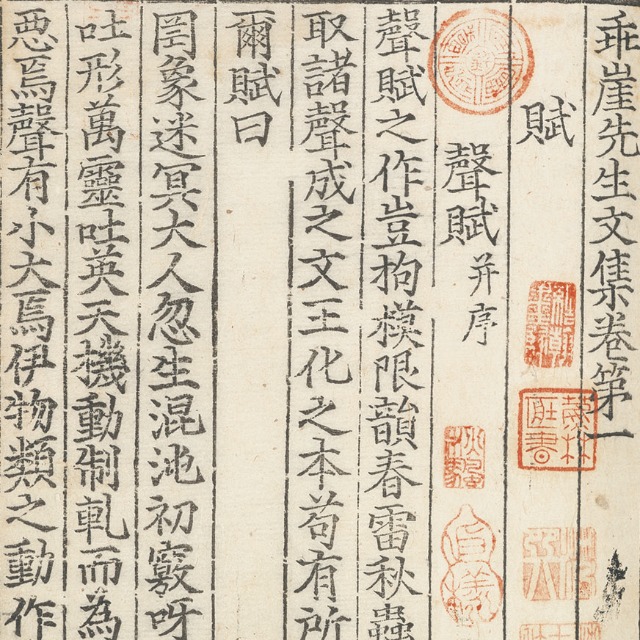 乖崖先生文集卷第一
賦
聲賦并序
聲賦之作豈拘模限韻春雷秋蟲
取諸聲成之文王化之本苟有所
爾賦曰
罔象迷冥大人忽生混沌初竅呀
吐形萬靈吐英天機動制軋而為
惡焉聲有小大焉伊物類之動作